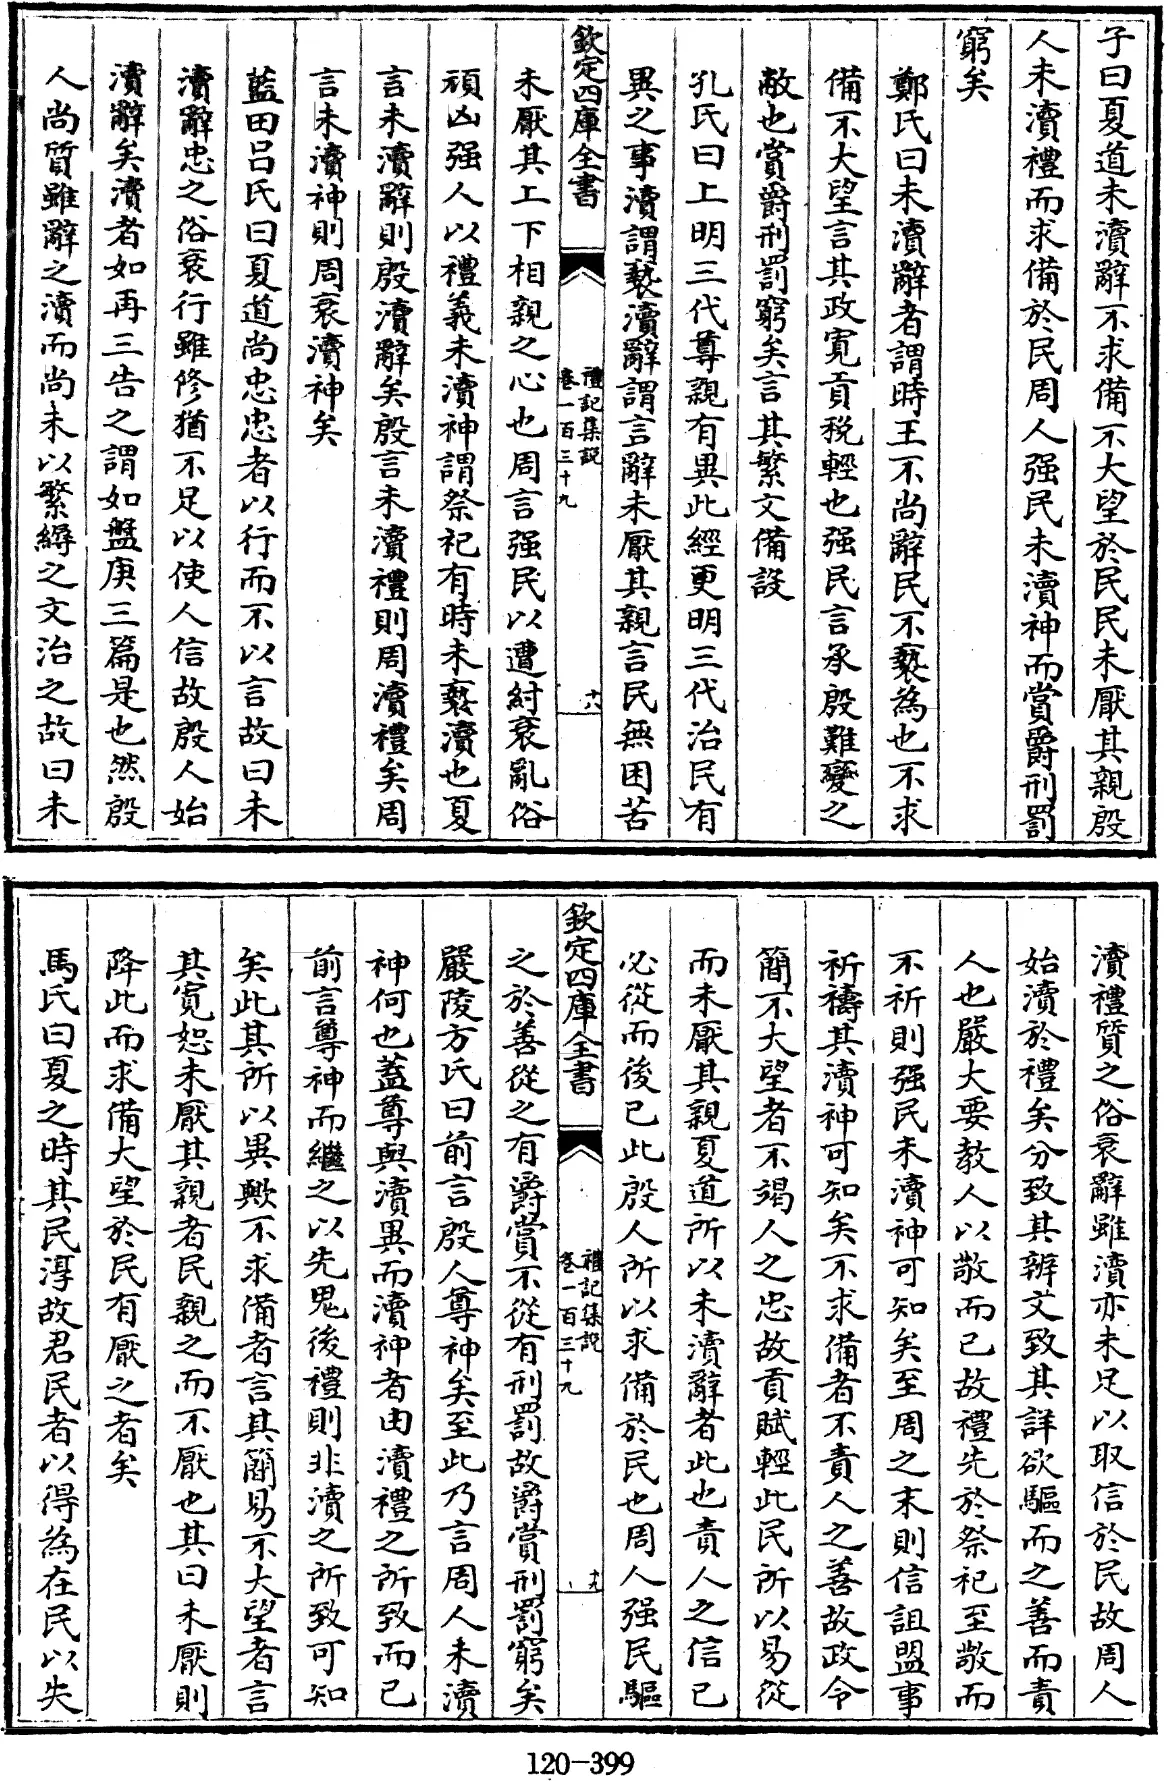 子曰夏道未瀆辭不求備不大望於民民未厭其親殷
人未瀆禮而求備於民周人强民未瀆神而賞爵刑罰
窮矣
鄭氏曰未瀆辭者謂時王不尚辭民不褻為也不求
備不大望言其政寛貢稅輕也强民言承殷難變之
敝也賞爵刑罰窮矣言其繁文備設
孔氏曰上明三代尊親有異此經更明三代治民有
異之事瀆謂褻瀆辭謂言辭未厭其親言民無困苦
欽定四庫全書
禮記集説
卷一百三十九
十八
未厭其上下相親之心也周言强民以遭紂衰亂俗
頑凶强人以禮義未瀆神謂祭祀有時未褻瀆也夏
言未瀆辭則殷瀆辭矣殷言未瀆禮則周瀆禮矣周
言未瀆神則周衰瀆神矣
藍田吕氏曰夏道尚忠忠者以行而不以言故曰未
瀆辭忠之俗衰行雖修猶不足以使人信故殷人始
瀆辭矣瀆者如再三告之謂如盤庚三篇是也然殷
人尚質雖辭之瀆而尚未以繁縟之文治之故曰未
瀆禮質之俗衰辭雖瀆亦未足以取信於民故周人
始瀆於禮矣分致其辨文致其詳欲驅而之善而責
人也嚴大要教人以敬而已故禮先於祭祀至敬而
不祈則强民未瀆神可知矣至周之末則信詛盟事
祈禱其瀆神可知矣不求備者不責人之善故政令
簡不大望者不竭人之忠故貢賦輕此民所以易從
而未厭其親夏道所以未瀆辭者此也責人之信已
必從而後已此殷人所以求備於民也周人强民驅
欽定四庫全書
禮記集説
卷一百三十九
十九
之於善從之有爵賞不從有刑罰故爵賞刑罰窮矣
嚴陵方氏曰前言殷人尊神矣至此乃言周人未瀆
神何也蓋尊與瀆異而瀆神者由瀆禮之所致而已
前言尊神而繼之以先鬼後禮則非瀆之所致可知
矣此其所以異歟不求備者言其簡易不大望者言
其寛恕未厭其親者民親之而不厭也其曰未厭則
降此而求備大望於民有厭之者矣
馬氏曰夏之時其民淳故君民者以得為在民以失
120-399